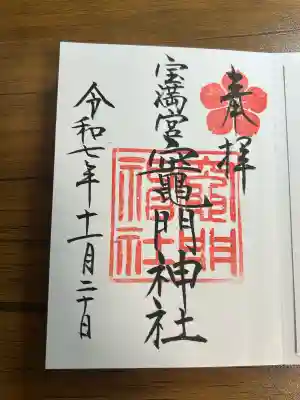 奉拝
宝満宮竈門神社
令和七年十一月二十日
竈門神社